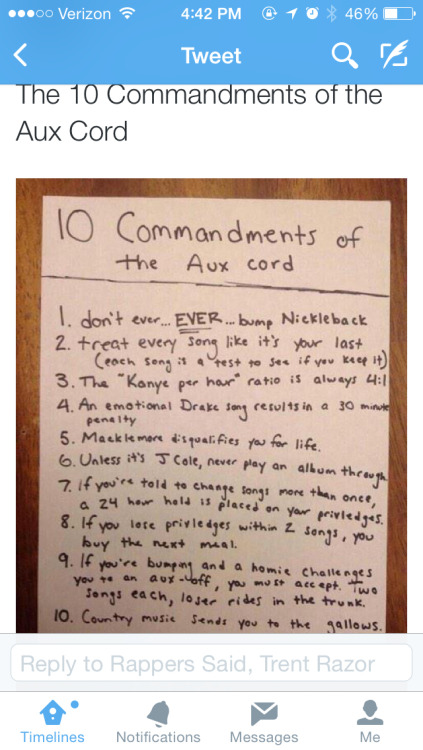 Verizon 4:42 PM 46%
Tweet
The 10 Commandments of the
Aux Cord
10 Commandments of
the Aux cord
1. don't ever... EVER... bump Nickleback
2. treat every song like it's your last
(each song is a test to see if you keep it)
3. The "Kanye per hour" ratio is always 4:1
4. An emotional Drake song results in a 30 minute
penalty
5. Macklemore disqualifies you for life.
6. Unless it's J Cole, never play an album through
7. If you're told to change songs more than once,
a 24 hour hold is placed on your privledges.
8. If you lose privledges within 2 songs, you
buy the next meal.
9. If you're bumping and a homie challenges
you to an aux-off, you must accept. Two
songs each, loser rides in the trunk.
10. Country music sends you to the gallows.
Reply to Rappers Said, Trent Razor
Timelines Notifications Messages Me